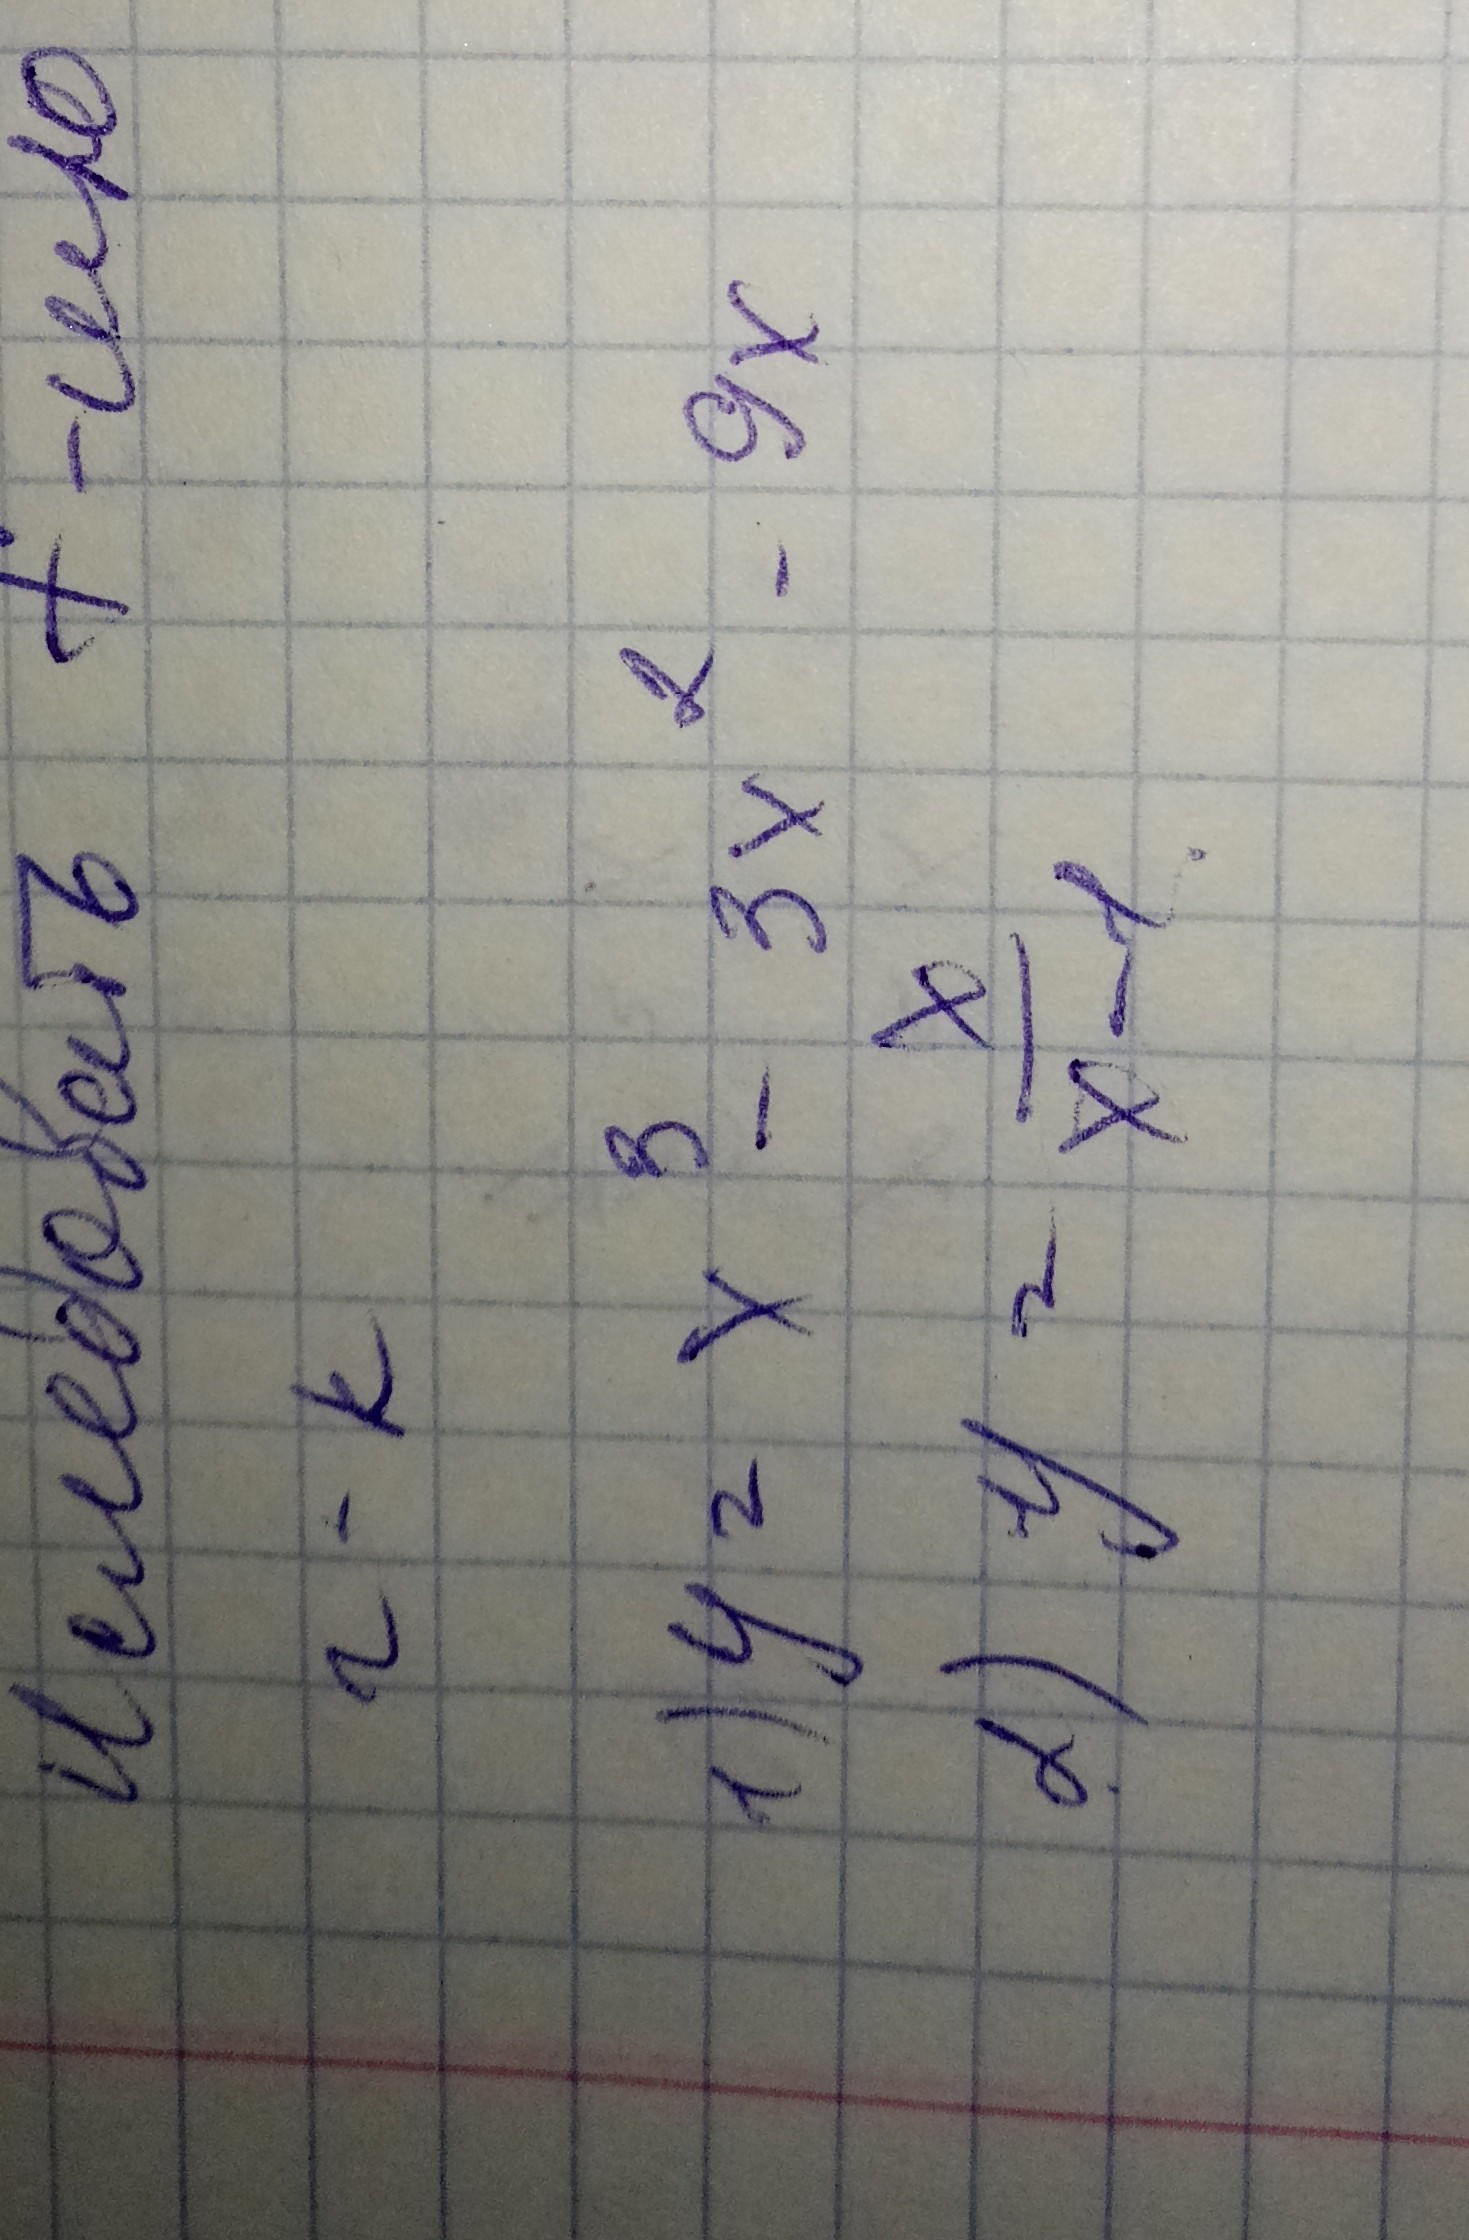 Исследовать f-цию
г-к
1) y = x³ - 3x² - 9x
2) y = x/x-1